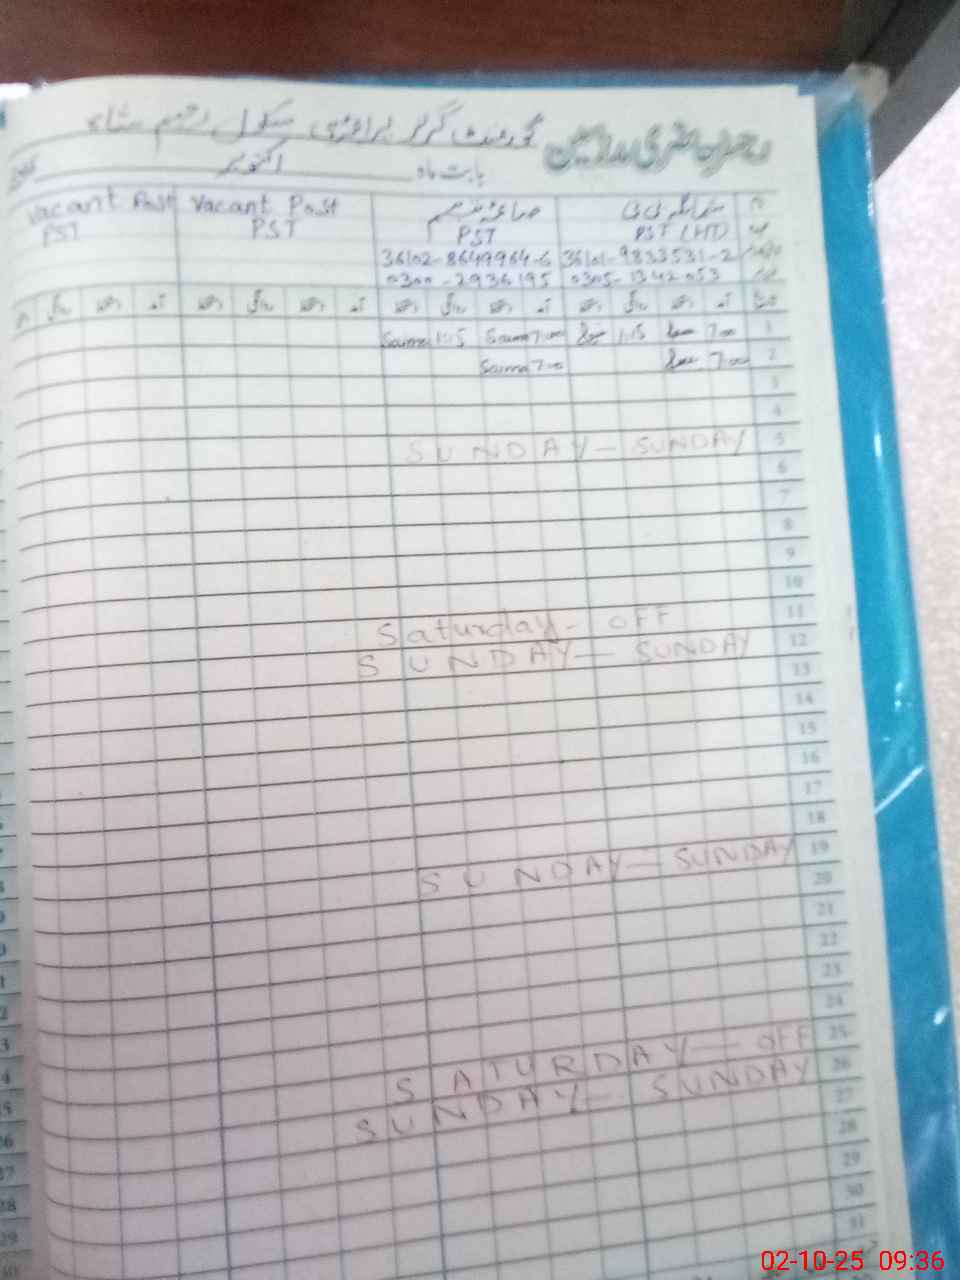 رجسٹر حاضری مدرسین گورنمنٹ گرلز پرائمری سکول رحیم شاہ
بابت ماہ اکتوبر
Vacant Post Vacant Post صائمہ نسیم
PST PST PST PST (HT)
36102-8649964-6 36101-9833531-2
0300-2936195 0305-1342053
آمد دستخط روانگی دستخط آمد دستخط روانگی دستخط آمد دستخط روانگی دستخط آمد دستخط روانگی
Saima 1:15 Saima 7:00 1:15 7:00 1
Saima 7:00 7:00 2
3
4
SUNDAY — SUNDAY 5
6
7
8
9
10
Saturday - OFF 11
SUNDAY — SUNDAY 12
13
14
15
16
17
18
SUNDAY — SUNDAY 19
20
21
22
23
24
SATURDAY — OFF 25
SUNDAY — SUNDAY 26
27
28
29
30
31
02-10-25 09:36